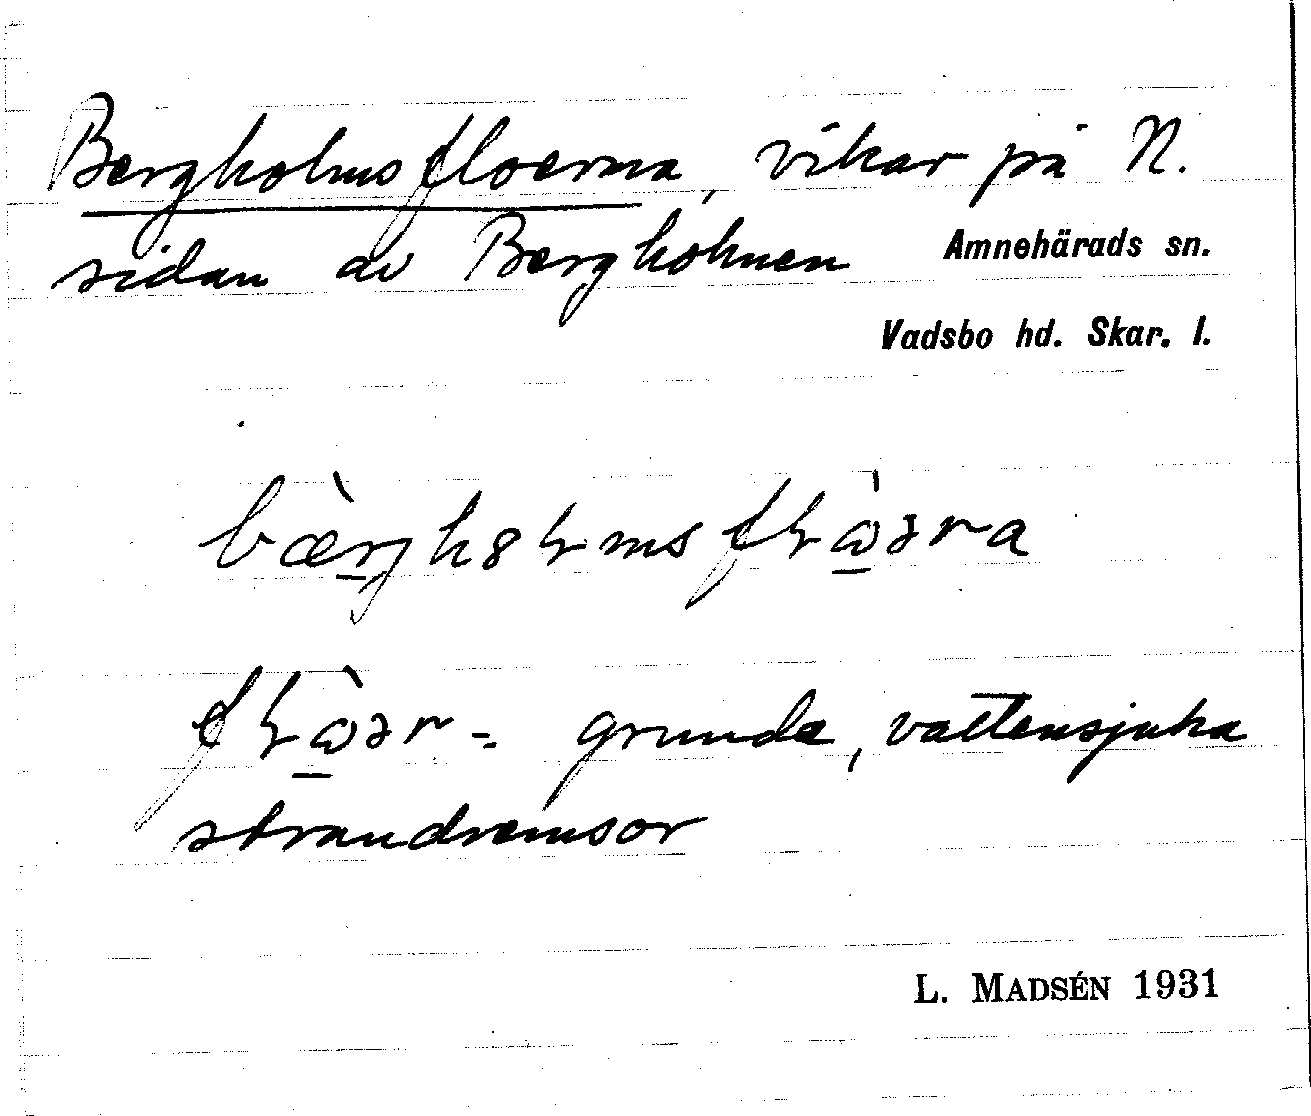 Bergholmsfloerna, vikar på N.
sidan av Bergholmen Amnehärads sn.
Vadsbo hd. Skar. l.
bæ̀rghɷɫmsfɫɷ̀əra
fɫɷ̀ər = grunda, vattensjuka
strandremsor
L. MADSÉN 1931